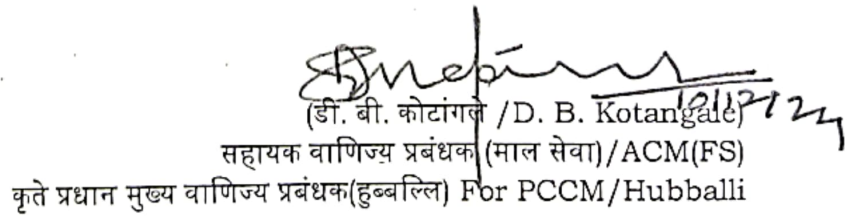 10/12/24
(डी. बी. कोटांगले /D. B. Kotangale)
सहायक वाणिज्य प्रबंधक (माल सेवा)/ACM(FS)
कृते प्रधान मुख्य वाणिज्य प्रबंधक(हुब्बल्लि) For PCCM/Hubballi